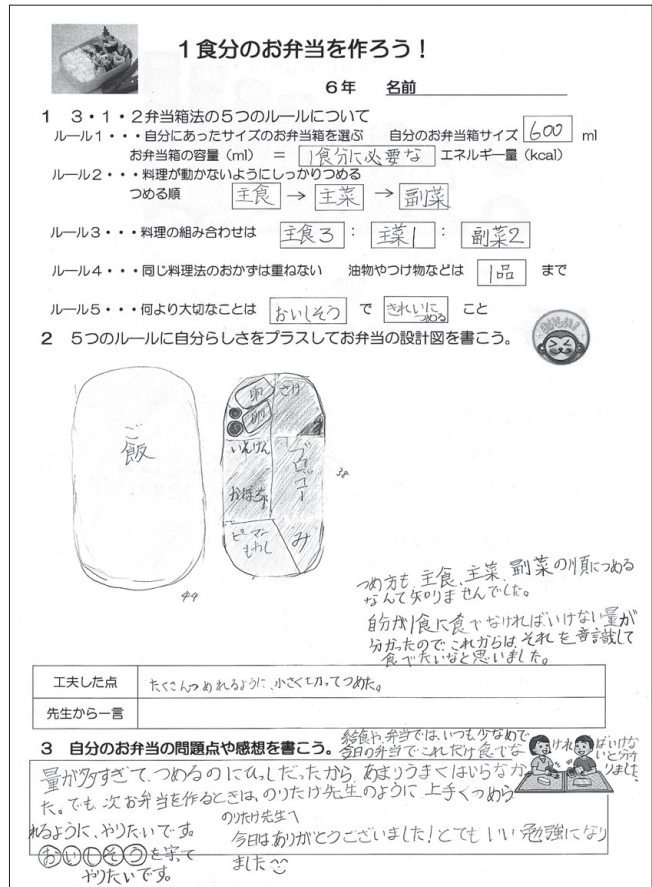 1食分のお弁当を作ろう！
6年 名前
1 3・1・2弁当箱法の5つのルールについて
ルール1・・・自分にあったサイズのお弁当箱を選ぶ 自分のお弁当箱サイズ 600 ml
お弁当箱の容量（ml） ＝ 1食分に必要な エネルギー量（kcal）
ルール2・・・料理が動かないようにしっかりつめる
つめる順 主食 → 主菜 → 副菜
ルール3・・・料理の組み合わせは 主食3 : 主菜1 : 副菜2
ルール4・・・同じ料理法のおかずは重ねない 油物やつけ物などは 1品 まで
ルール5・・・何より大切なことは おいしそう で きれいにつめる こと
2 5つのルールに自分らしさをプラスしてお弁当の設計図を書こう。
ご飯
卵 さけ
卵
いんげん
ブロッコリー
かぼちゃ
ピーマン
もやし
み
38
44
つめ方も、主食、主菜、副菜の順につめる
なんて知りませんでした。
自分が1食に食べなければいけない量が
分かったので、これからは、それを意識して
食べたいなと思いました。
工夫した点 たくさんつめれるように、小さく切ってつめた。
先生から一言
3 自分のお弁当の問題点や感想を書こう。
給食や、弁当では、いつも少なめで
今日の弁当でこれだけ食べな
ければいけな
いと分か
りました
量が多すぎて、つめるのにひっしだったから、あまりうまくはいらなかっ
た。でも、次お弁当を作るときは、のりたけ先生のように、上手くつめら
れるように、やりたいです。
おいしそうを守って
やりたいです。
のりたけ先生へ
今日はありがとうございました！とてもいい勉強になり
ました